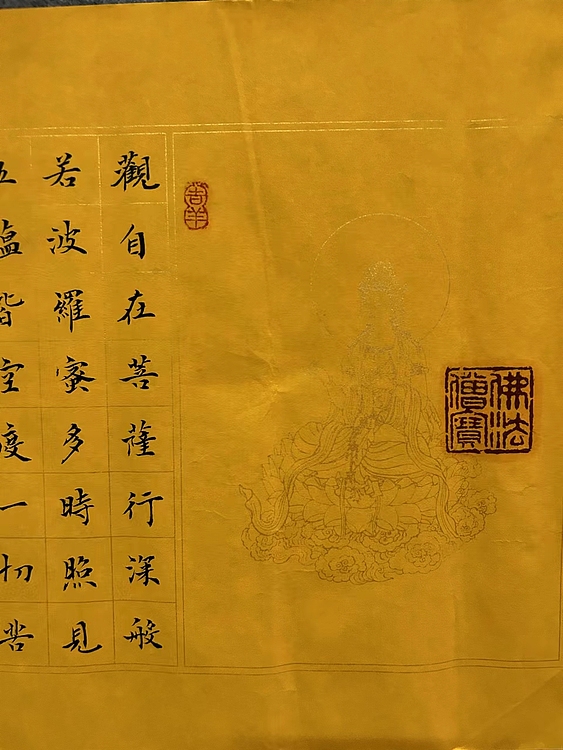 佛法
僧寶
觀自在菩薩行深般
若波羅蜜多時照見
五蘊皆空度一切苦